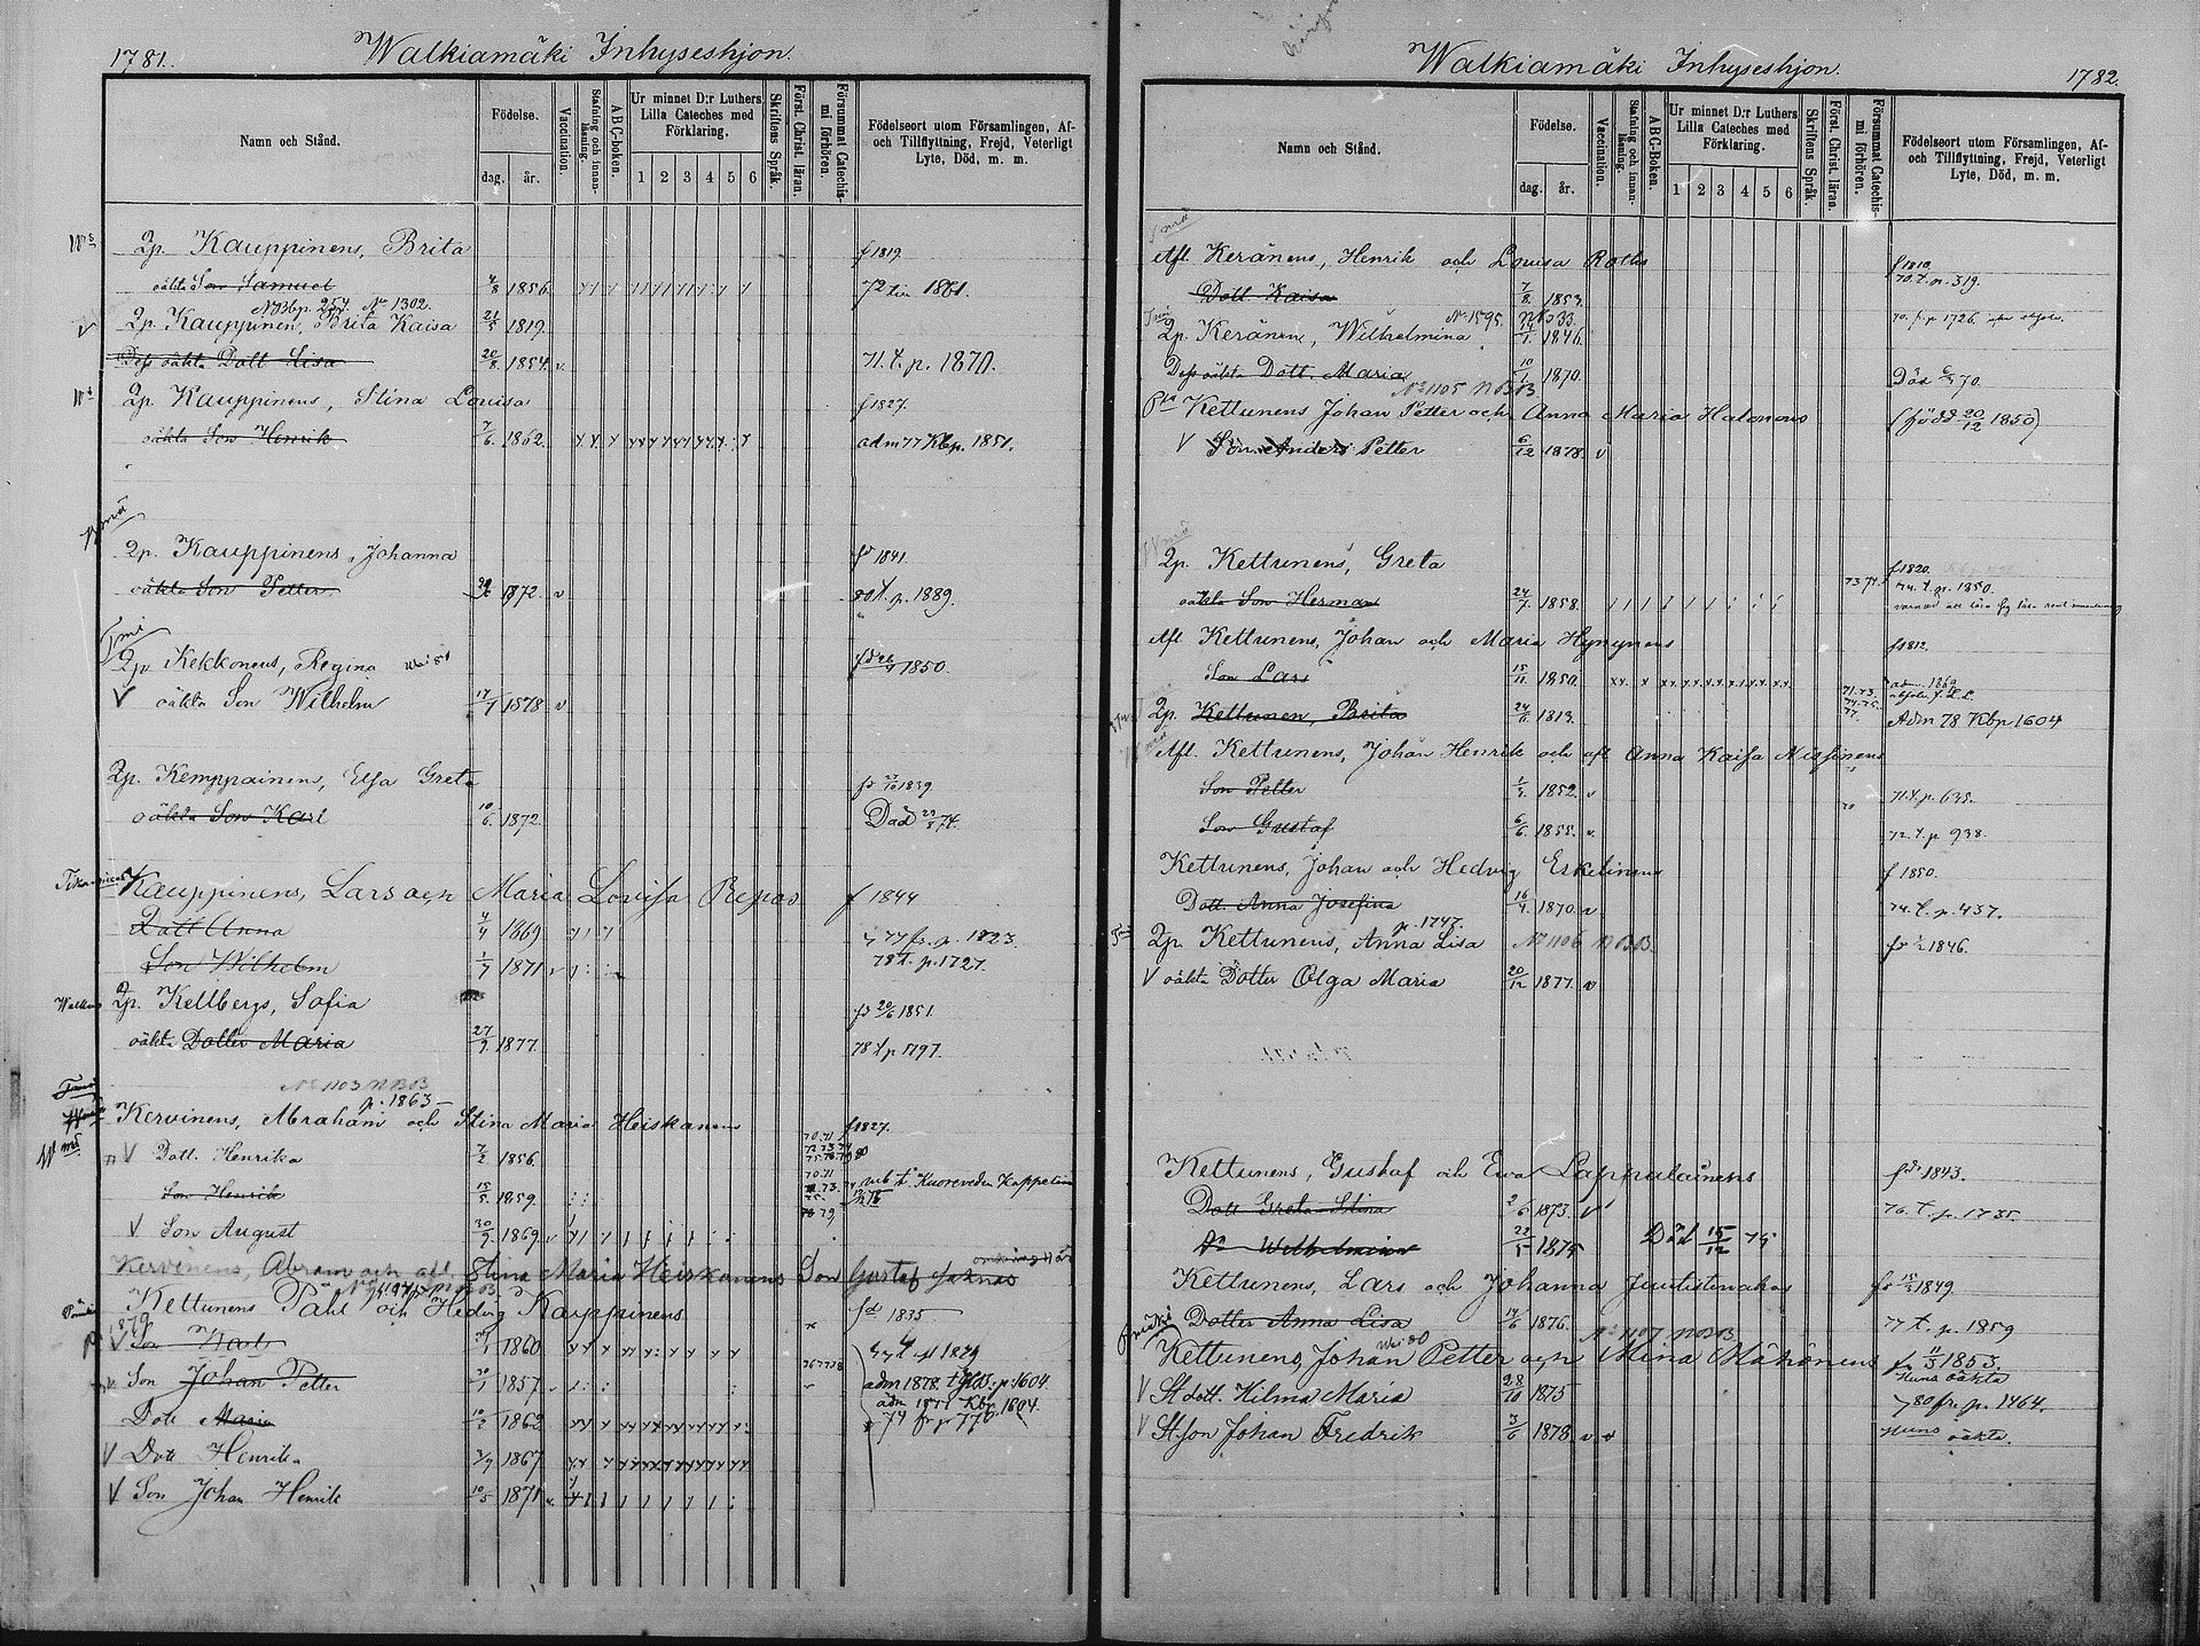 1781.
Walkiamäki Inhyseshjon.
Namn och Stånd.
Födelse.
dag.
år.
Vaccination.
Stafning och innanläsning.
A B C-boken.
Ur minnet D:r Luthers Lilla Cateches med Förklaring.
1 2 3 4 5 6
Skriftens Språk.
Först. Christ. läran.
Försummat Catechismi förhören.
Födelseort utom Församlingen, Af- och Tillflyttning, Frejd, Veterligt Lyte, Död, m. m.
Qp. Kauppinens, Brita f 1819
oäkta Son Samuel 4/8 1856. 72 1861.
254. No 1302.
Qp. Kauppinen, Brita Kaisa 21/5 1819.
Dess oäkta Dott Lisa 20/8 1854. v. 71. t. p. 1870.
Qp. Kauppinens, Stina Lovisa f 1827.
oäkta Son Henrik 7/6. 1862. adm 77 Kbp. 1851.
Qp. Kauppinens, Johanna fd 1841.
oäkta Son Petter 1872. v 80 t. p. 1889.
Qp Kekkonens, Regina 1850.
V oäkta Son Wilhelm 17/1 1878 v
Qp. Kemppainens, Elsa Greta 1839
oäkta Son Karl 10/6. 1872. Död 74.
Kauppinens, Lars och Maria Lovisa Repos f 1844
Dott Anna 4/4 1869 77 fr. p. 1823.
Son Wilhelm 1/7 1871 v 78 t. p. 1727.
Qp. Kellbergs, Sofia fd 20/6 1851.
oäkta Dotter Maria 27/9 1877. 78 t p 1797.
No 1103 NBB
p. 1863
Kervinens, Abraham och Stina Maria Heiskanens f 1827.
V Dott. Henrika 7/2 1856.
Son Henrik 15/5. 1859. Kuoreveden Kappelin
V Son August 30/9. 1869. v
Kervinens, Abram och afl. Stina Maria Heiskanens Son Gustaf
Kettunens Påhl och Hedvig Kauppinens fd 1835
V Son 1860
Son Johan Petter 30/1 1857 adm 1878. p. 1604.
Dott Maria 10/2 1862 Kbp. 1604.
V Dott Henrika 3/9 1867
V Son Johan Henrik 10/5 1871
Walkiamäki Inhyseshjon.
1782.
Namn och Stånd.
Födelse.
dag.
år.
Vaccination.
Stafning och innanläsning.
A B C-Boken.
Ur minnet D:r Luthers Lilla Cateches med Förklaring.
1 2 3 4 5 6
Skriftens Språk.
Först. Christ. läran.
Försummat Catechismi förhören.
Födelseort utom Församlingen, Af- och Tillflyttning, Frejd, Veterligt Lyte, Död, m. m.
Afl. Keränens, Henrik och Lovisa Roths f 1810.
Dott Kaisa 7/8. 1853. 70. t. p. 319.
No 1595.
Qp. Keränen, Wilhelmina 1846. 1726.
Dess oäkta Dott. Maria 10/1 1870. Död 70.
No 1105 NBB.
Kettunens Johan Petter och Anna Maria Halonens (född 20/12 1850)
V Son Anders Petter 6/12 1878. v
Qp. Kettunens, Greta f 1820.
oäkta Son Herman 24/7. 1858. 73 74. 74. t. p. 1850.
Afl. Kettunens, Johan och Maria Hynynens f 1812.
Son Lars 15/11 1850. adm. 1869
Qp. Kettunen, Brita 24/6. 1813. Adm 78 Kbp 1604
Afl. Kettunens, Johan Henrik och afl Anna Kaisa Nissinens
Son Petter 1852. v 71. t. p. 635.
Son Gustaf 6/6 1855. v. 72. t. p 938.
Kettunens, Johan och Hedvig Eskelinens f 1850.
Dott. Anna Josefina 16/4. 1870. v 74. t. p. 457.
p. 1747.
Qp. Kettunens, Anna Lisa No 1106 NBB. 1846.
V oäkta Dotter Olga Maria 20/12 1877. v
Kettunens, Gustaf och Eva Lappalainens fd. 1843.
Dott Greta Stina 2/6 1873. v 76. t. p. 1735
Do Wilhelmina 22/5 1875 Död 15/12 75
Kettunens, Lars och Johanna 1849
Dotter Anna Lisa 14/6 1876. 77 t. p. 1859
No 1107 NBB
Kettunens, Johan Petter och Mina Mähönens 1853.
V St dott. Hilma Maria 28/10 1875 Huns oäkta
80 fr. p. 1464.
V St. son Johan Fredrik 3/6 1878. v Huns oäkta.